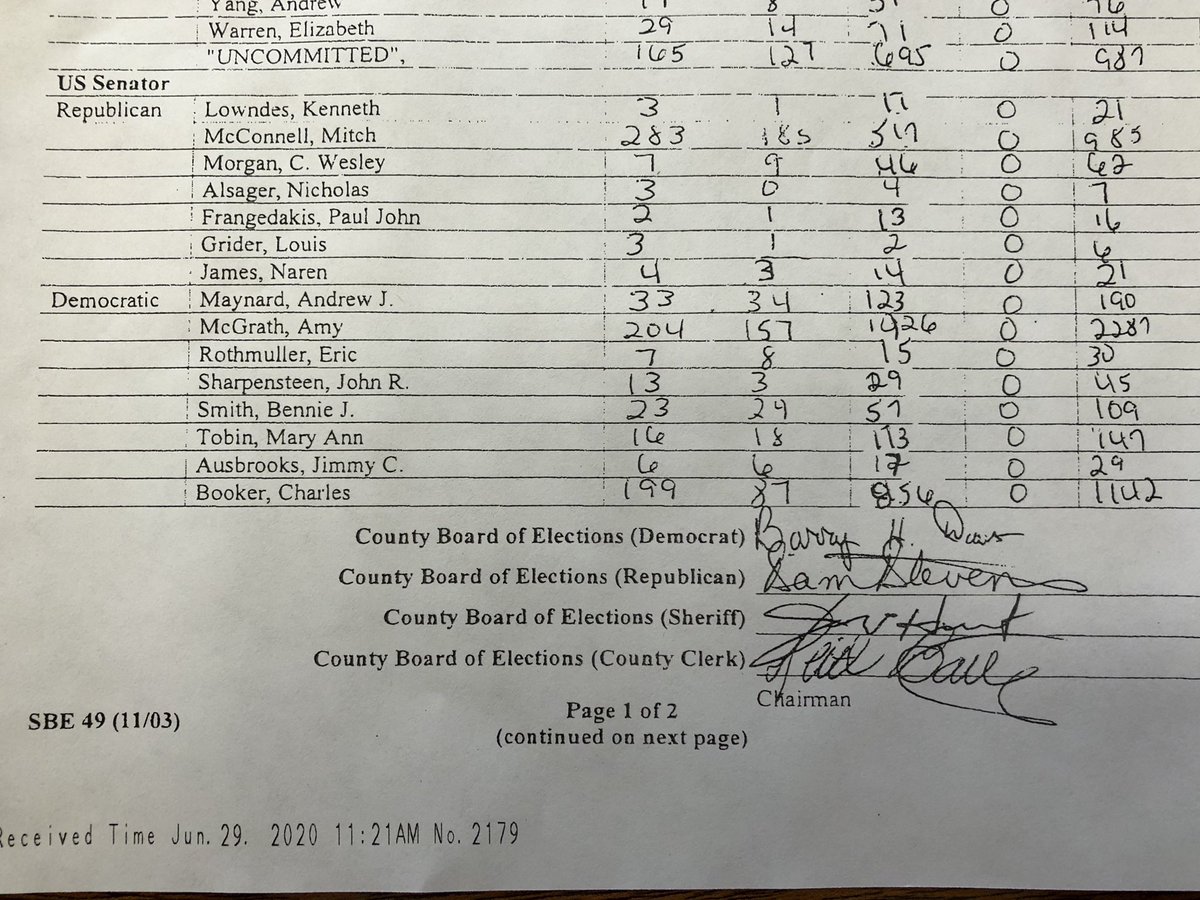 Yang, Andrew 8 0 76
Warren, Elizabeth 29 14 71 0 114
"UNCOMMITTED", 165 127 695 0 987
US Senator
Republican Lowndes, Kenneth 3 1 17 0 21
McConnell, Mitch 283 185 517 0 985
Morgan, C. Wesley 7 9 46 0 62
Alsager, Nicholas 3 0 4 0 7
Frangedakis, Paul John 2 1 13 0 16
Grider, Louis 3 1 2 0 6
James, Naren 4 3 14 0 21
Democratic Maynard, Andrew J. 33 34 123 0 190
McGrath, Amy 204 157 1926 0 2287
Rothmuller, Eric 7 8 15 0 30
Sharpensteen, John R. 13 3 29 0 45
Smith, Bennie J. 23 29 57 0 109
Tobin, Mary Ann 16 18 113 0 147
Ausbrooks, Jimmy C. 6 6 17 0 29
Booker, Charles 199 87 856 0 1142
County Board of Elections (Democrat) Barry H. Davis
County Board of Elections (Republican) Sam Stevens
County Board of Elections (Sheriff)
County Board of Elections (County Clerk)
Chairman
SBE 49 (11/03)
Page 1 of 2
(continued on next page)
Received Time Jun. 29. 2020 11:21AM No. 2179